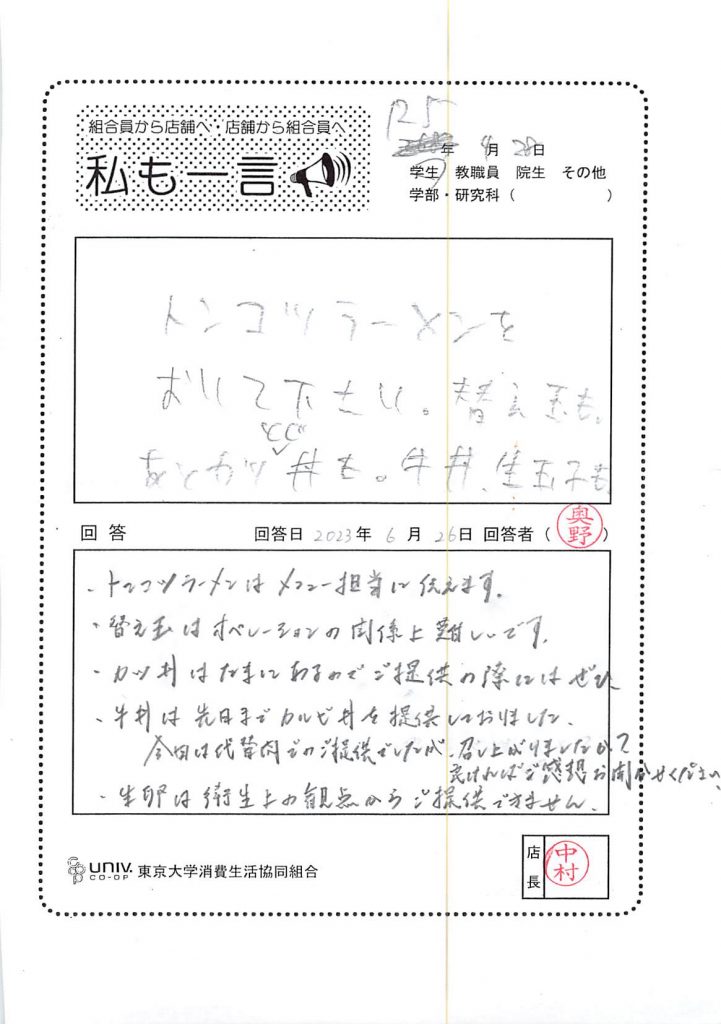 組合員から店舗へ・店舗から組合員へ
私も一言
R5
年 4月 28日
学生 教職員 院生 その他
学部・研究科（ ）
トンコツラーメンを
おいて下さい。替え玉も。
丼も。牛丼、生玉子も
回答 回答日 2023年 6月 26日 回答者（奥野）
・トンコツラーメンはメニュー担当に伝えます。
・替え玉はオペレーションの関係上難しいです。
・カツ丼はたまにあるのでご提供の際にはぜひ
・牛丼は先日までカルビ丼を提供しておりました。
今回は代替肉でのご提供でしたが、召し上がりましたか？
良ければご感想お聞かせください。
・生卵は衛生上の観点からご提供できません。
UNIV. CO-OP 東京大学消費生活協同組合
店長 中村